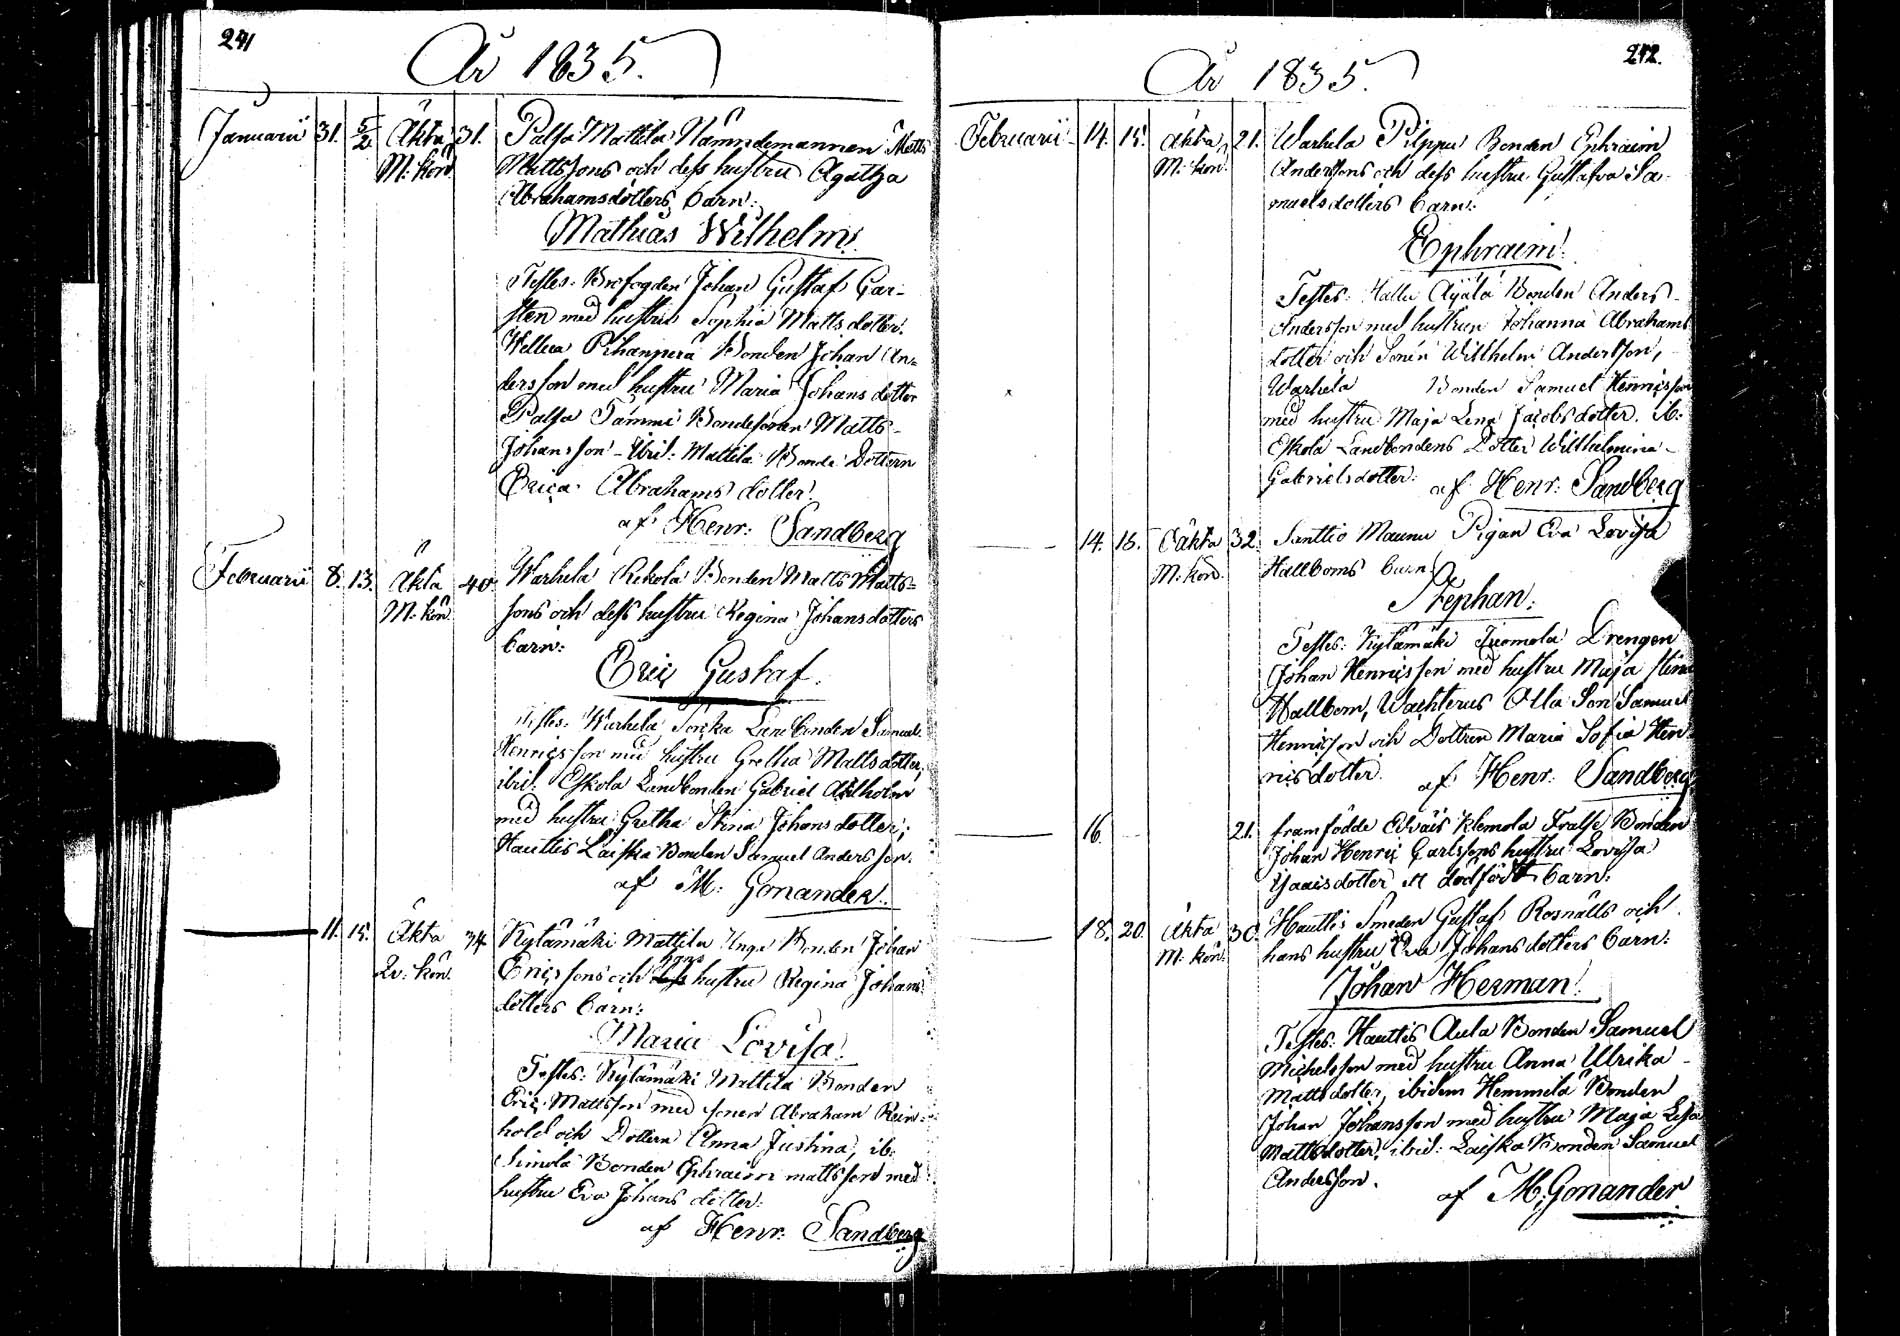 241
År 1835.
Januarii 31. 5/2 Äkta M: kön. 31. Palsa Mattila Nämndemannen Matts
Mattssons och dess hustru Agatha
Abrahamsdotters barn:
Mathias Wilhelm.
Testes: Brofogden Johan Gustaf Car-
sten med hustru Sophia Matts dotter.
Wellua Pihanperä Bonden Johan An-
dersson med hustru Maria Johans dotter
Palsa Tammi Bondesonen Matts
Johansson – ibid: Mattila Bonde Dottern
Erica Abrahams dotter.
af Henr: Sandberg
Februarii 8. 13. Äkta M: kön 40. Warhela Chekola Bonden Matts Matts-
sons och dess hustru Regina Johansdotters
barn:
Eric Gustaf.
Testes: Warhela Sorcka Landbonden Samuel
Henricsson med hustru Gretha Mattsdotter,
ibid: Eskola Landbonden Gabriel Ahlholm
med hustru Gretha Stina Johans dotter;
Hauttis Laiska Bonden Samuel Andersson.
af M: Gonander.
11. 15. Äkta Qv: kön. 34. Kylämäki Mattila Unge Bonden Johan
Ericssons och dess hans hustru Regina Johans
dotters barn:
Maria Lovisa.
Testes: Kylämäki Mattila Bonden
Eric Mattsson med sonen Abraham Rein-
hold och Dottern Anna Justina, ib:
Simola Bonden Ephraim Mattsson med
hustru Eva Johans dotter.
af Henr: Sandberg
242.
År 1835.
Februarii 14. 15. Äkta M: kön. 21. Warhela Pilppu Bonden Ephraim
Anderssons och dess hustru Gustafva Sa-
muelsdotters barn:
Ephraim.
Testes: Hallu Äyälä Bonden Anders
Andersson med hustrun Johanna Abrahams
dotter och Sonen Willhelm Andersson,
Warhela Bonden Samuel Henricsson
med hustru Maja Lena Jacobsdotter. ib:
Eskola Landbondens Dotter Wilhelmina
Gabrielsdotter. af Henr: Sandberg
14. 15. Oäkta M: kön. 32. Santtio Maunu Pigan Eva Lovisa
Hallboms barn
Stephan.
Testes: Kylämäki Tuomola Drengen
Johan Henricsson med hustru Maja Stina
Hallbom, Wachterus Olla Son Samuel
Henricsson och Dottren Maria Sofia Hen-
ricsdotter. af Henr: Sandberg
16. 21. framfödde Edväis Klemola Frälse Bonden
Johan Henric Carlssons hustru Lovisa
Isaacsdotter et dödfödt barn.
18. 20. Äkta M: kön. 30. Hauttis Smeden Gustaf Rosnälls och
hans hustru Eva Johansdotters barn:
Johan Herman.
Testes: Hauttis Aula Bonden Samuel
Michelsson med hustru Anna Ulrika
Mattsdotter, ibidem Hemmelä Bonden
Johan Johansson med hustru Maja Lisa
Mattsdotter, ibid: Laiska Bonden Samuel
Andersson.
af M: Gonander